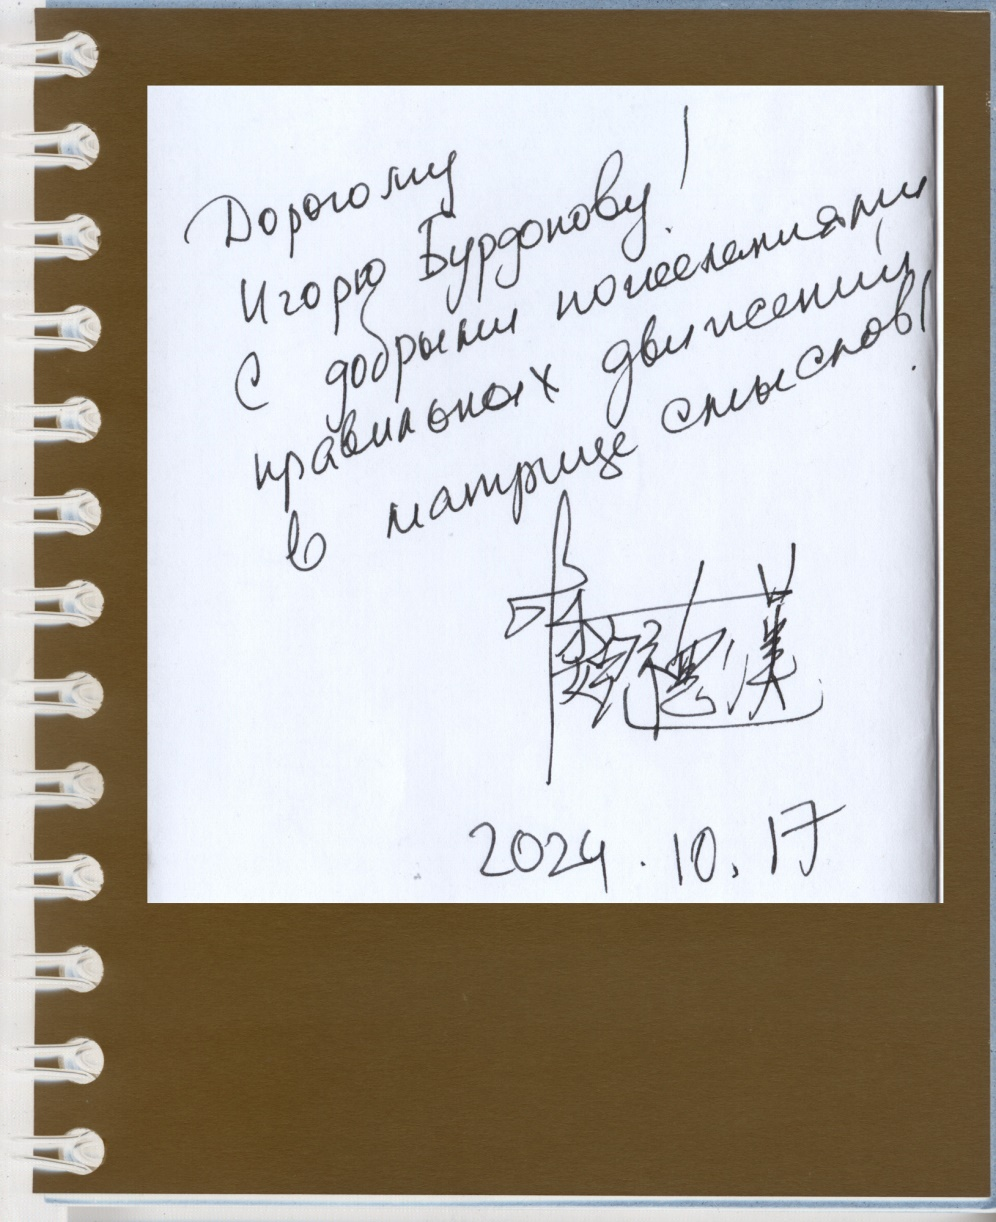 Дорогому
Игорю Бурдонову!
С добрыми пожеланиями
правильных движений
в матрице смыслов!
2024.10.17